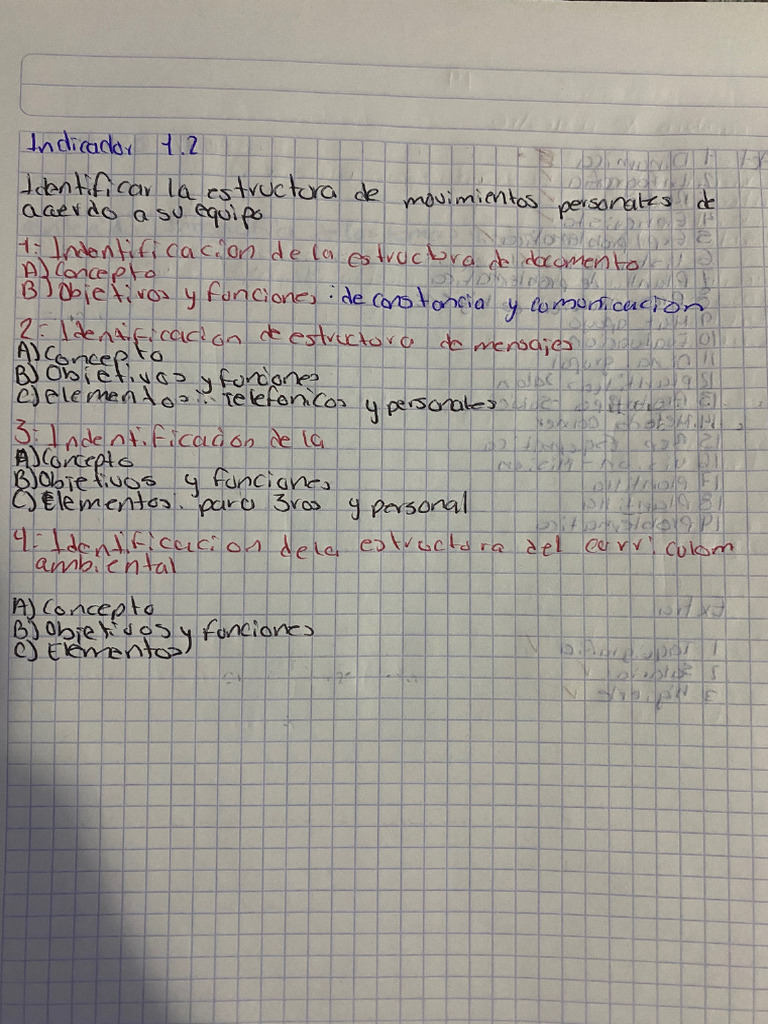 Indicador 1.2
Identificar la estructura de movimientos personales de
acuerdo a su equipo
1: Indentificacion de la estructura de documento
A) Concepto
B) Objetivos y funciones : de constancia y comunicacion
2: Identificacion de estructura de mensajes
A) Concepto
B) Objetivos y funciones
C) elementos: Telefonicos y personales
3: Indentificacion de la
A) Concepto
B) Objetivos y funciones
C) Elementos. para 3ros y personal
4: Identificacion de la estructura del curriculum
ambiental
A) Concepto
B) Objetivos y funciones
C) Elementos